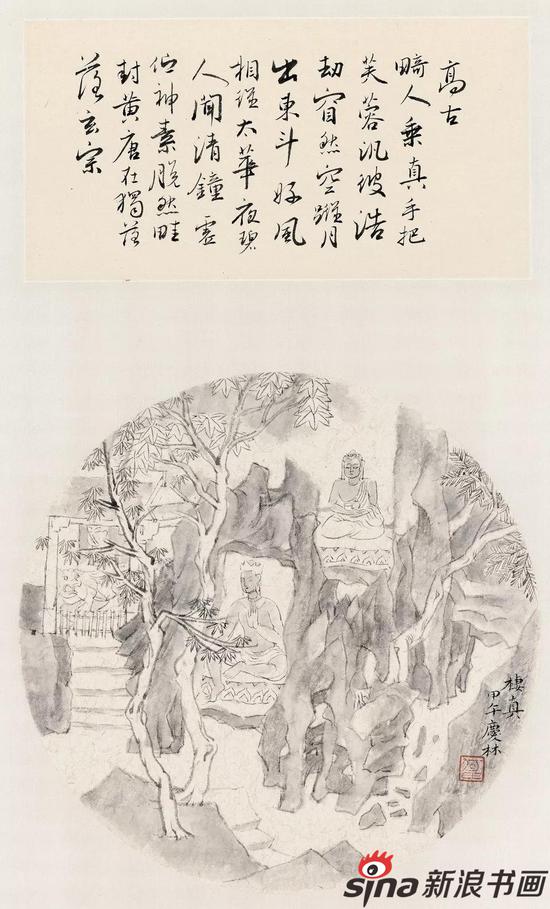 高古
畸人乘真手把
芙蓉汎彼浩
劫窅然空蹤月
出東斗好風
相從太華夜碧
人聞清鐘虛
佇神素脫然畦
封黃唐在獨落
落玄宗
棲真
甲午慶林
sina新浪书画